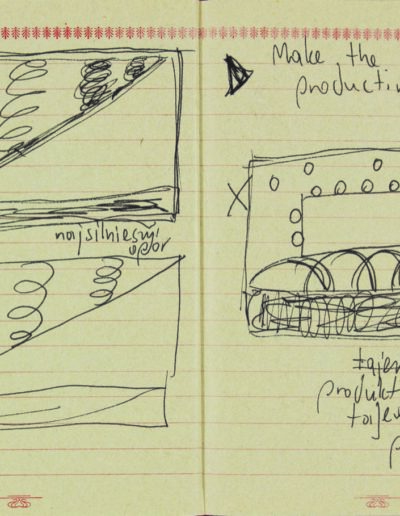 najsilniejszy
opór
Make the
producti
tajem
produkt
taje
p